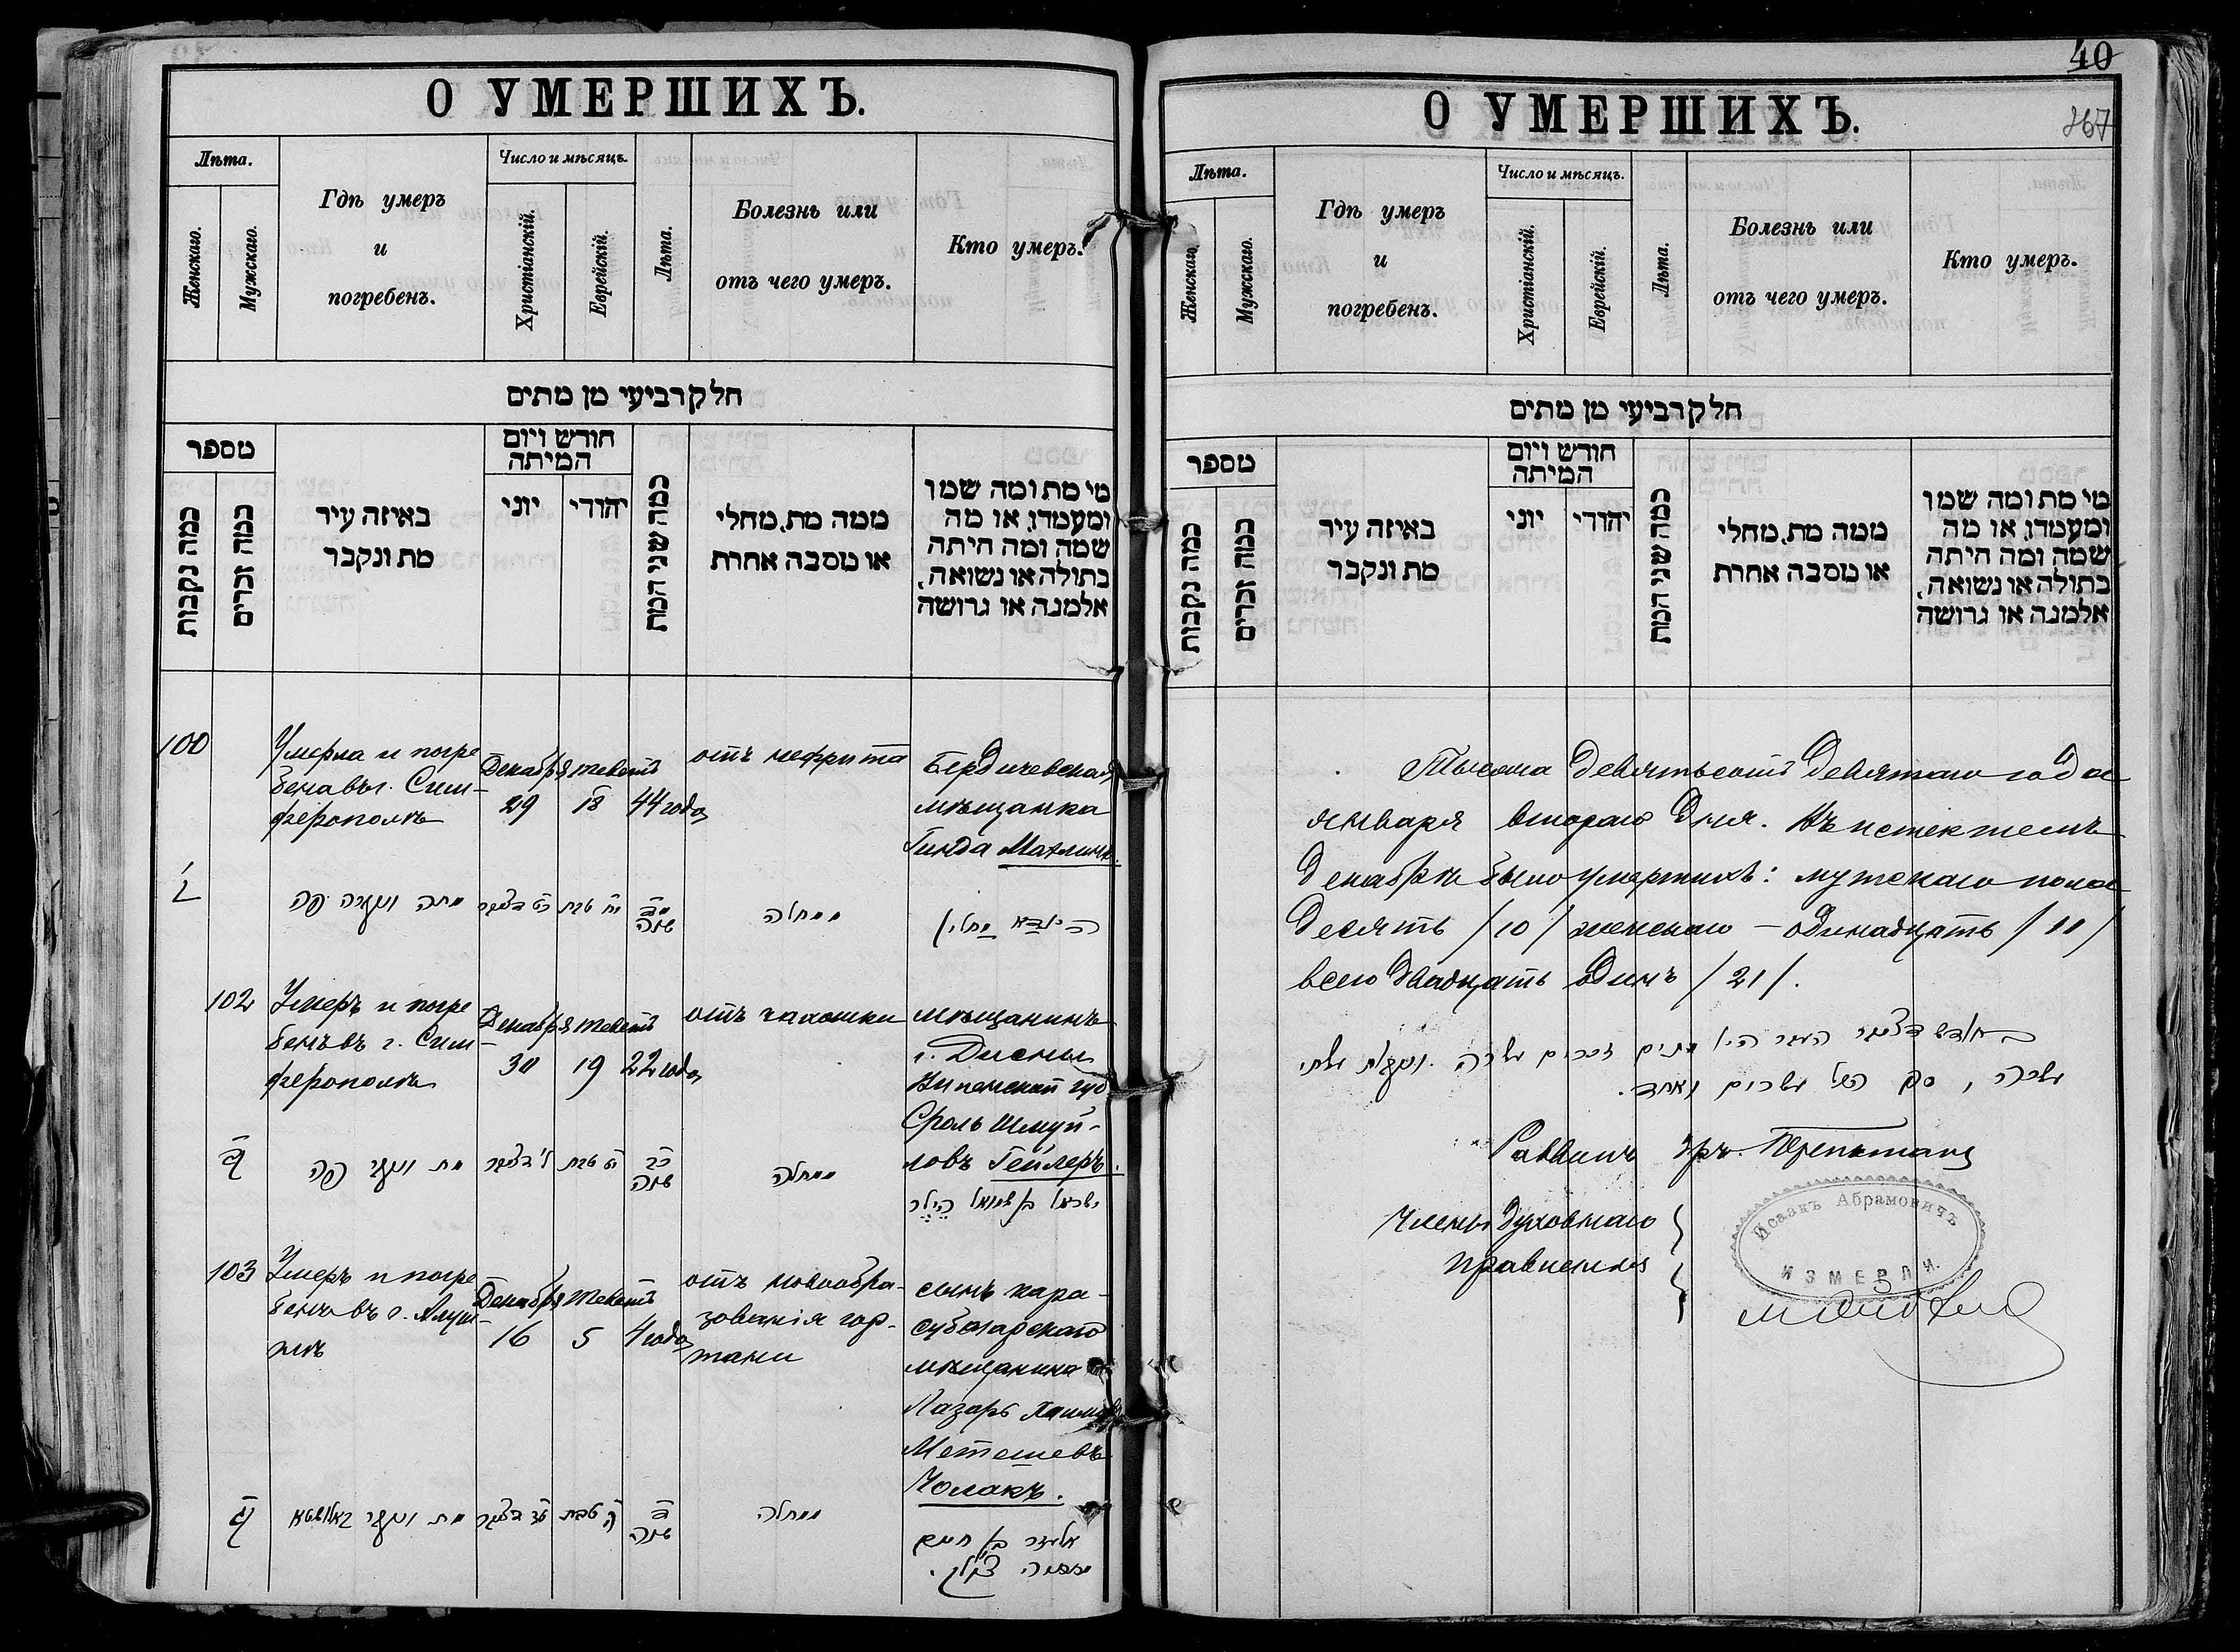 О УМЕРШИХЪ.
Лѣта.
Женскаго.
Мужскаго.
Гдѣ умеръ
и
погребенъ.
Число и мѣсяцъ.
Христіанскій.
Еврейскій.
Лѣта.
Болезнь или
отъ чего умеръ.
Кто умеръ.
חלק רביעי מן מתים
מספר
כמה נקבות
כמה זכרים
באיזה עיר
מת ונקבר
חודש ויום
המיתה
יוני
יהודי
כמה שני המת
ממה מת, מחלי
או מסבה אחרת
מי מת ומה שמו
ומעמדו, או מה
שמה ומה היתה
בתולה או נשואה,
אלמנה או גרושה
100
Умерла и погре
бена въ г. Сим-
ферополѣ
Декабря
29
Теветъ
18
44 года
отъ нефрита
Бердичевская
мѣщанка
Гинда Махлинъ.
ק
מתה ונקברה פה
כט דצמבר
יח טבת
מד
שנה
ממחלה
הינדא מחלין
102
Умеръ и погре
бенъ въ г. Сим-
ферополѣ
Декабря
30
Теветъ
19
22 года
отъ чахотки
мѣщанинъ
г. Дисны
Виленской губ
Сроль Шмуй-
ловъ Гейлеръ.
קב
מת ונקבר פה
ל דצמבר
יט טבת
כב
שנה
ממחלה
ישראל בן שמואל היילר
103
Умеръ и погре
бенъ въ г. Алуш-
тѣ
Декабря
16
Теветъ
5
4 года
отъ новообра-
зованія гор-
тани
сынъ кара-
субазарскаго
мѣщанина
Лазарь Хаимъ
Метешевъ
Чолакъ.
קג
מת ונקבר באלושטא
טז דצמבר
ה טבת
ד
שנה
ממחלה
אליעזר בן חיים
40
267
О УМЕРШИХЪ.
Лѣта.
Женскаго.
Мужскаго.
Гдѣ умеръ
и
погребенъ.
Число и мѣсяцъ.
Христіанскій.
Еврейскій.
Лѣта.
Болезнь или
отъ чего умеръ.
Кто умеръ.
חלק רביעי מן מתים
מספר
כמה נקבות
כמה זכרים
באיזה עיר
מת ונקבר
חודש ויום
המיתה
יוני
יהודי
כמה שני המת
ממה מת, מחלי
או מסבה אחרת
מי מת ומה שמו
ומעמדו, או מה
שמה ומה היתה
בתולה או נשואה,
אלמנה או גרושה
Тысяча девятьсотъ девятаго года
января втораго дня. Въ истекшемъ
декабрѣ было умершихъ: мужскаго пола
десять /10/ женскаго — одинадцать /11/
всего двадцать одинъ /21/.
בחודש דצמבר העבר היו מתים זכרים עשרה ונקבות עשתי
עשרה, סך הכל עשרים ואחד.
Раввинъ
Члены Духовнаго
правленія
Исаакъ Абрамовичъ
ИЗМЕРЛИ.